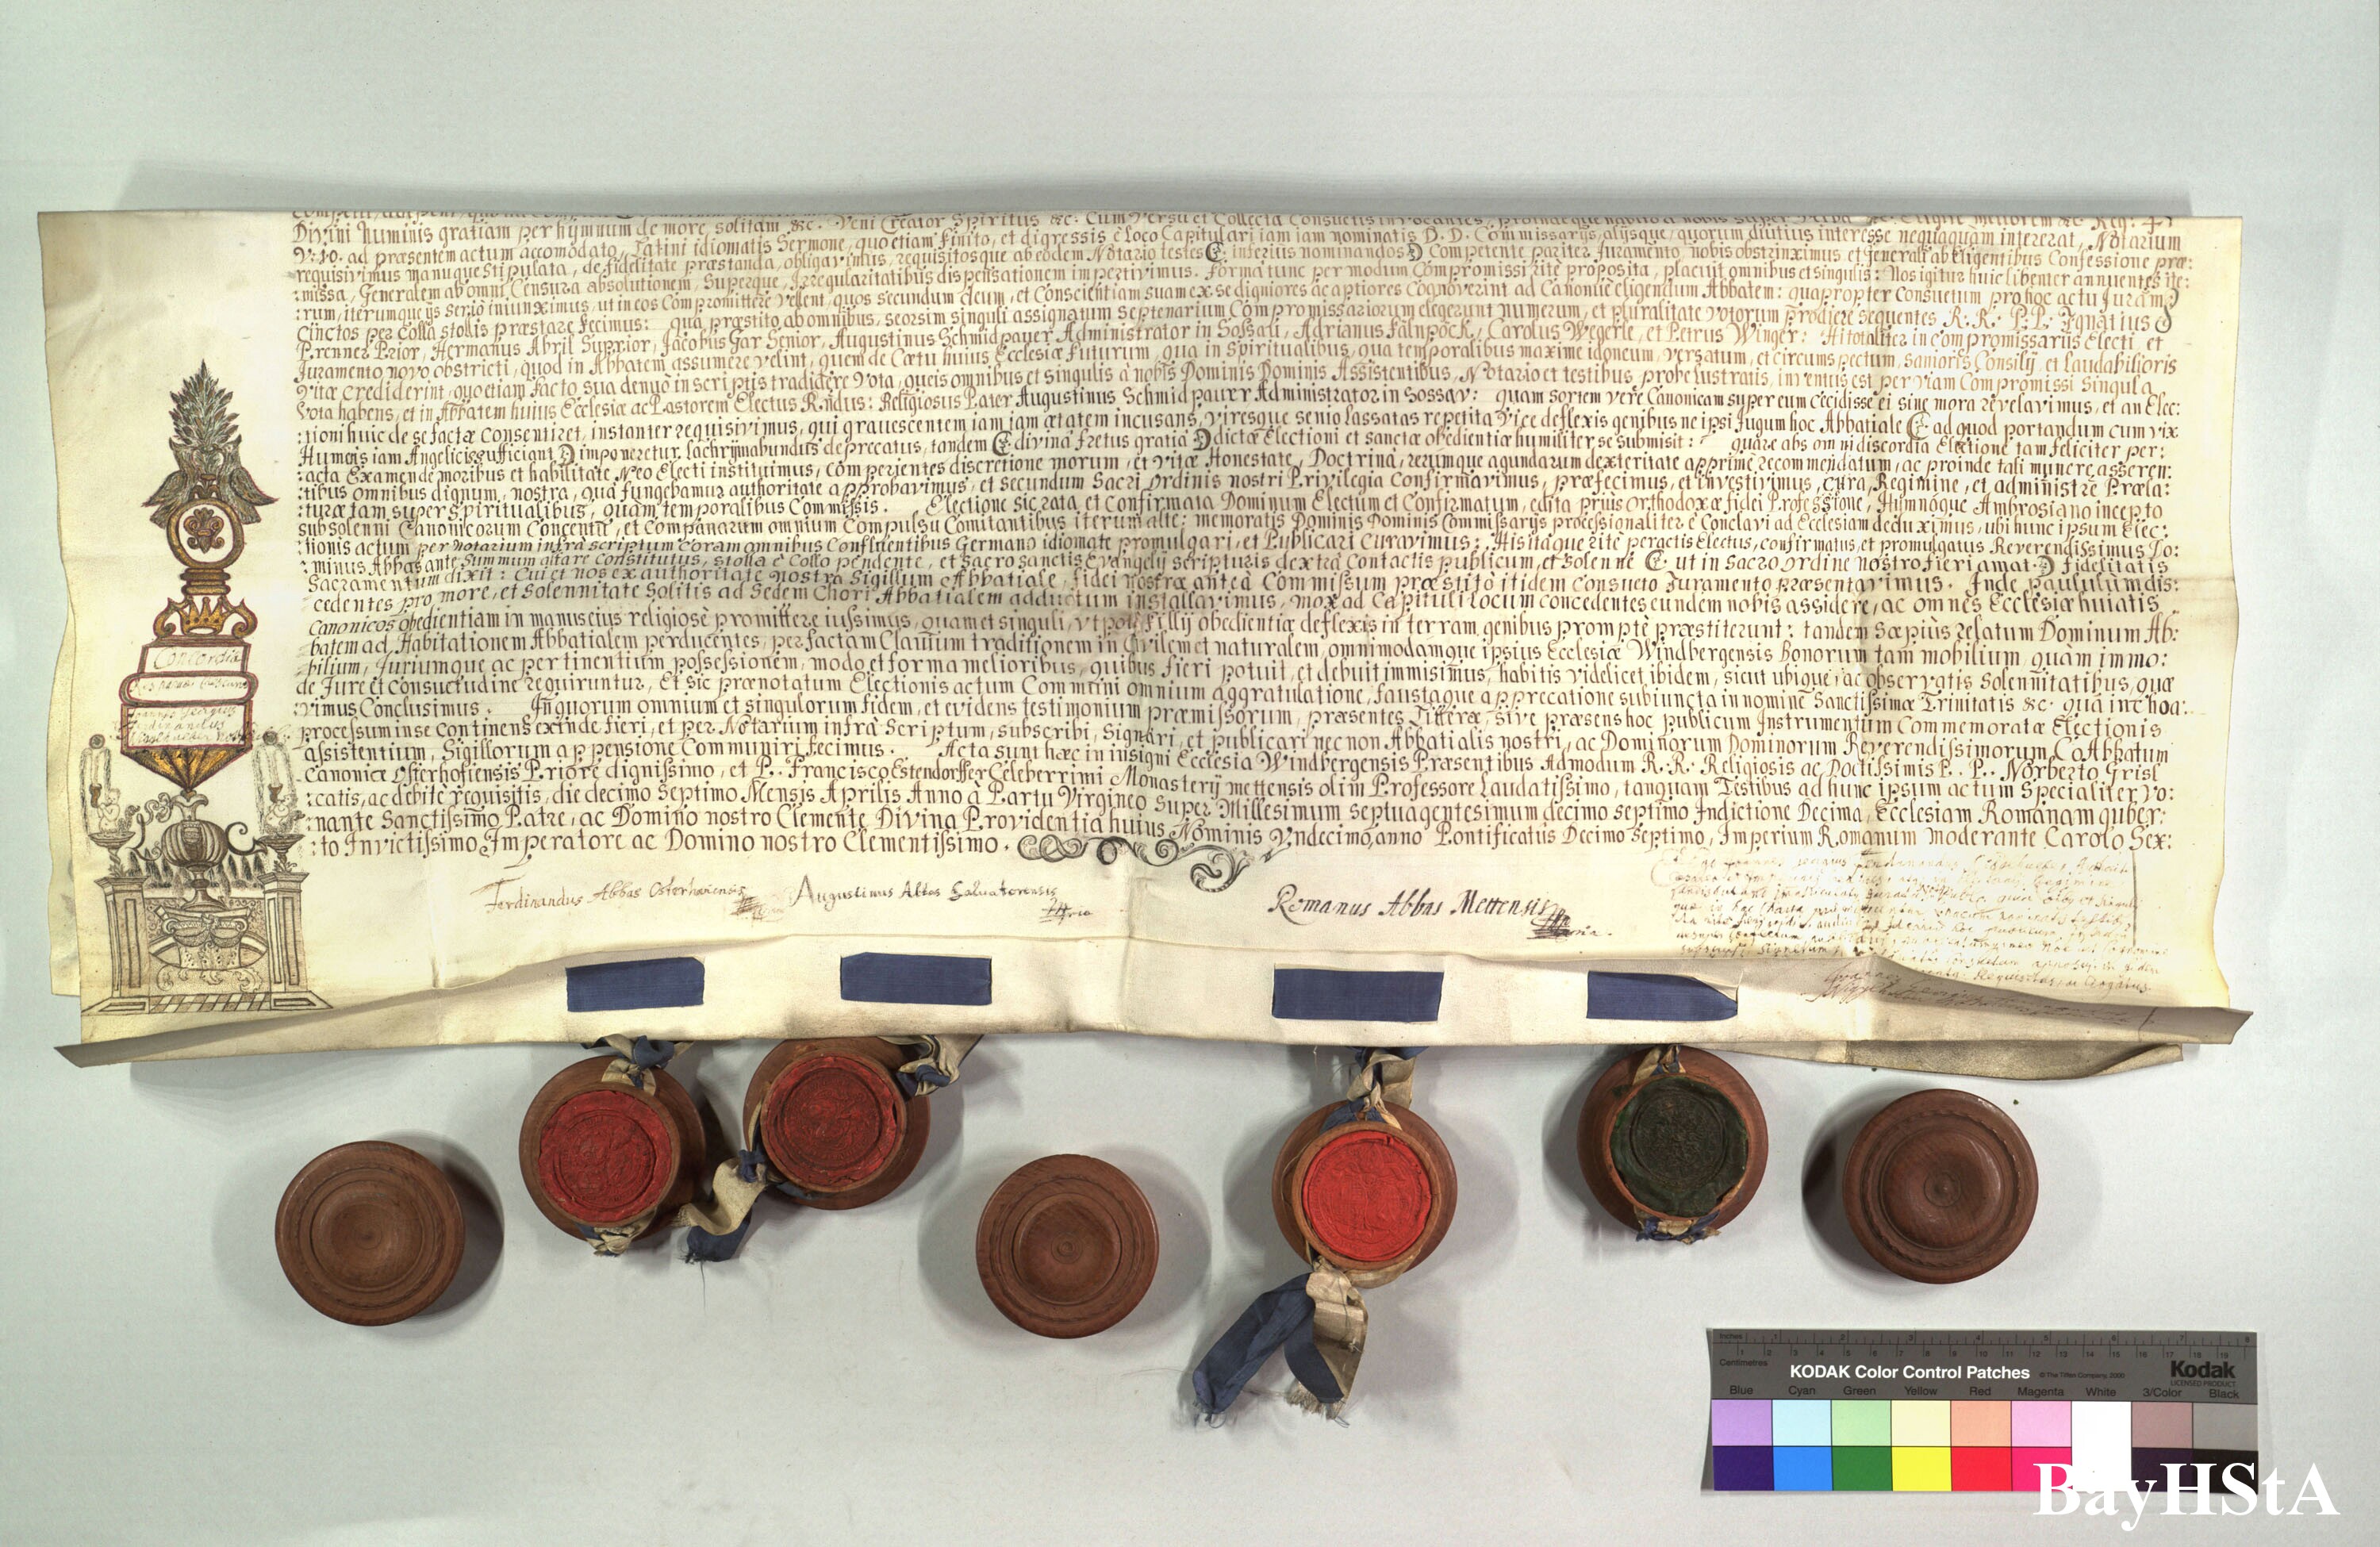 Divini Numinis gratiam per hymnum de more solitam &c. Veni Creator Spiritus &c. Cum Versu et Collecta Consuetis invocantes,
Vro. ad præsentem actum accomodato, Latini idiomatis Sermone, quo etiam Finito, et digressis è loco Capitulari iam iam nominatis D. D. Commissarijs, alijsque, quorum diutius interesse nequaquàm intererat, Notarium
requisivimus manuque Stipulata, de fidelitate præstanda, obligavimus, requisitosque ab eodem Notario testes inferius nominandos Competente pariter Juramento, nobis obstrinximus et Generali ab Eligentibus Confessione præ:
:missa, Generalem ab omni Censura absolutionem, Superque, Irregularitatibus dispensationem impertivimus. Forma tunc per modum Compromissi ritè proposita, placuit omnibus et singulis: Nos igitur huic libenter annuentes ite:
:rum, iterumque ijs seriò iniunximus, ut in eos Compromittere vellent, quos secundum deum, et Conscientiam suam ex se digniores ac aptiores Cognoverint ad Canonicè eligendum Abbatem: quapropter Consuetum pro hoc actu Juram
Cinctos per Colla stollis præstare fecimus: quâ præstito ab omnibus, seorsim singuli assignatum Septenarium Compromissariorum elegerunt numerum, et pluralitate Votorum prodiere sequentes R. R. P. P. Ignatius
Prenner Prior, Hermanus Abril Supprior, Jacobus Gar Senior, Augustinus Schmidpauer Administrator in Sossau, Adrianus Falnpöck, Carolus Wegerle, et Petrus Winger: Hi totaliter in compromissarijs Electi et
Juramento novo obstricti, quod in Abbatem assumere velint, quem de Cœtu huius Ecclesiæ Futurum, quà in Spiritualibus, quà temporalibus maximè idoneum, versatum, et circumspectum, sanioris Consilij, et laudabilioris
Vitæ Crediderint, quo etiam facto, sua denuò in scriptis tradidere Vota, queis omnibus et singulis à nobis Dominis Dominis Assistentibus, Notario et testibus probè lustratis, inventus est per viam Compromissi Singula
Vota habens, et in Abbatem huius Ecclesiæ ac Pastorem Electus R.ndus: Religiosus Pater Augustinus Schmidpauer Administrator in Sossau: quam sortem verè Canonicam super eum Cecidisse ei sine mora revelavimus, et an Elec:
:tioni huic de se factæ Consentiret, instanter requisivimus, qui gravescentem iam iam ætatem incusans, viresque senio lassatas repetita vice deflexis genibus ne ipsi Jugum hoc Abbatiale ad quod portandum cum vix
Humeris iam Angelicis sufficiant imponeretur, lachrymabundus deprecatus, tandem divina fretus gratia dictæ Electioni et sanctæ obedientiæ humiliter se submisit: quare abs omni discordia Electione tam feliciter per:
:acta Examen de moribus et habilitate Neo Electi instituimus, comperientes discretione morum, et Vitæ Honestate, Doctrina, rerumque agundarum dexteritate apprimè recommendatum, ac proinde tali munere asseren:
:tibus omnibus dignum, nostra, qua fungebamur authoritate approbavimus, et secundum Sacri Ordinis nostri Privilegia Confirmavimus, præfecimus, et investivimus, Cura, Regimine, et administrẽ Præla:
:turæ tam super spiritualibus, quàm temporalibus Commissis. Electione sic rata, et Confirmata Dominum Electum et Confirmatum, edita priùs orthodoxæ fidei Professione, Hymnoque Ambrosiano incepto
sub solenni Canonicorum Concentu, et Campanarum omnium Compulsu Comitantibus iterum alte: memoratis Dominis Dominis Commissarijs processionaliter è Conclavi ad Ecclesiam deduximus, ubi hunc ipsum Elec:
:tionis actum per Notarium infrà scriptum Coram omnibus Confluentibus Germano idiomate promulgari, et Publicari Curavimus: His itaque ritè peractis Electus, confirmatus, et promulgatus Reverendissimus Do:
:minus Abbas ante Summum altare Constitutus, stolla è Collo pendente, et Sacro sanctis Evangelij scripturis dextra Contactis publicum, et Solenne ut in Sacro ordine nostro fieri amat fidelitatis
Sacramentum dixit: Cui et nos ex authoritate nostra Sigillum Abbatiale, fidei nostræ anteà Commissum præstito itidem consueto Juramento præsentavimus. Inde paululùm dis:
cedentes pro more, et Solennitate Solitis ad Sedem Chori Abbatialem adductum installavimus, mox ad Capituli locum concedentes eundem nobis assidere, ac omnes Ecclesiæ huiatis
Canonicos obedientiam in manus eius religiosè promittere iussimus, quam et singuli, ut pote Filij obedientiæ deflexis in terram genibus promptè præstiterunt: tandem Sæpiùs relatum Dominum Ab:
:batem ad Habitationem Abbatialem perducentes, per factam Clavium traditionem in Civilem et naturalem, omnimodamque ipsius Ecclesiæ Windbergensis Bonorum tam mobilium, quàm immo:
:bilium, Juriumque ac pertinentium possessionem, modo et forma melioribus, quibus fieri potuit, et debuit immisimus, habitis videlicet ibidem, sicut ubique, ac observatis Solennitatibus, quæ
de Jure et Consuetudine requiruntur, Et sic prænotatum Electionis actum Communi omnium aggratulatione, faustaque apprecatione subiuncta in nomine Sanctissimæ Trinitatis &c. quà inchoa:
:vimus Conclusimus. In quorum omnium et singulorum fidem, et evidens testimonium præmissorum, præsentes Litteræ, sive præsens hoc publicum Instrumentum Commemoratæ Electionis
processum in se continens exinde fieri, et per Notarium infrà Scriptum, subscribi, Signari, et publicari nec non Abbatialis nostri, ac Dominorum Dominorum Reverendissimorum CoAbbatum
assistentium, Sigillorum appensione Communiri fecimus. Acta sunt hæc in insigni Ecclesia Windbergensis Præsentibus Admodum R. R. Religiosis ac Doctissimis P. P. Norberto Grisl
Canoniæ Osterhofiensis Priore dignissimo, et P. Francisco Estendorffer Celeberrimi Monasterij mettensis olim Professore Laudatissimo, tanquam Testibus ad hunc ipsum actum Specialiter Vo:
:catis, ac debitè requisitis, die decimo Septimo Mensis Aprilis Anno à Partu Virgineo Super Millesimum Septuagentesimum decimo septimo Indictione Decima, Ecclesiam Romanam guber:
:nante Sanctissimo Patre, ac Domino nostro Clemente Divina Providentia huius Nominis Undecimo, anno Pontificatus Decimo Septimo, Imperium Romanum moderante Carolo Sex:
:to Invictissimo Imperatore ac Domino nostro Clementissimo.
Concordia
Ferdinandus Abbas Osterhoviensis
Augustinus Abbas Salvatorensis
Romanus Abbas Mettensis
Inches
Centimetres
KODAK Color Control Patches
© The Tiffen Company, 2000
Kodak
LICENSED PRODUCT
Blue Cyan Green Yellow Red Magenta White 3/Color Black
BayHStA